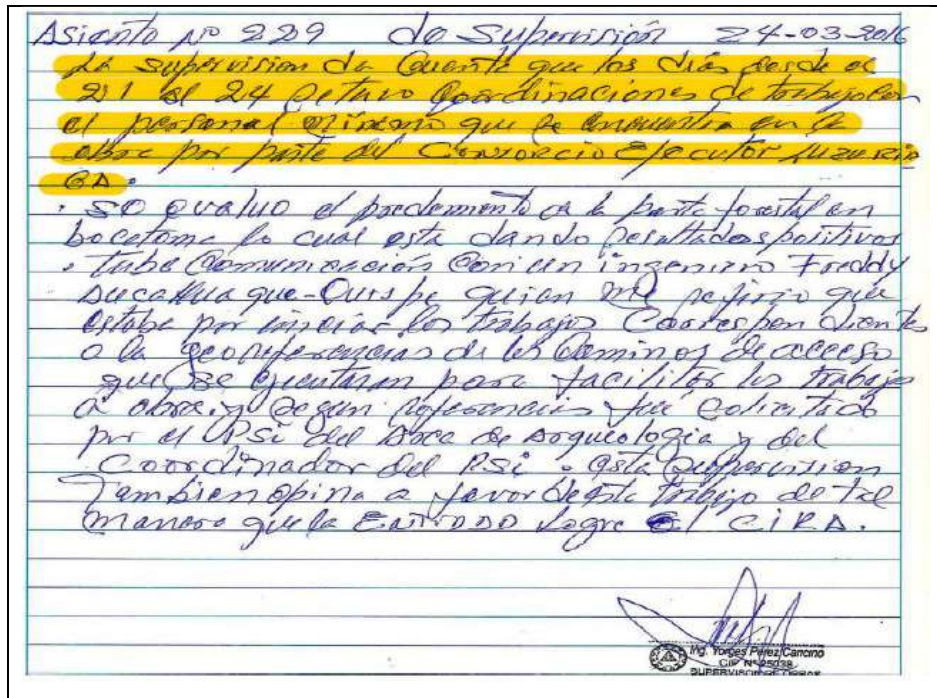 Asiento Nº 229 de Supervisión 24-03-2016
La supervision da Cuenta que los dias desde el
21 al 24 se tuvo Coordinaciones de trabajo con
el personal minimo que se encuentra en la
obra por parte del Consorcio Ejecutor
GA.
. se evaluo el de la parte forestal en
bocatoma lo cual esta dando resultados positivos
. Tube Comunicación Con un ingeniero Freddy
quien me refirio que
estaba por iniciar los trabajos Correspondiente
a la georeferencias de los Caminos de acceso
que se ejecutaran para facilitar los trabajo
a obra. y segun referencias fue solicitado
por el PSi del Area de Arqueologia y del
Coordinador del PSi. esta supervision
Tambien opina a favor de este trabajo de tal
manera que la Entidad logre El CIRA.
Ing. Yorges Perez Cancino
CIP Nº 25038
SUPERVISOR DE OBRAS